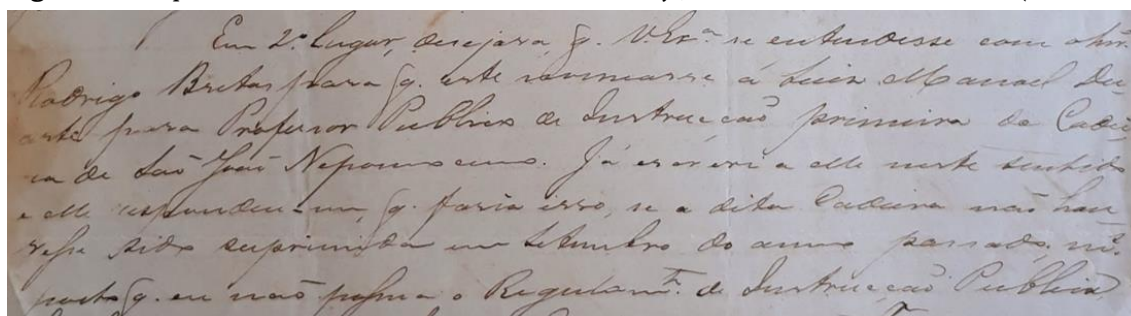 Em 2º lugar, desejara q. V. Exª se entendesse com o Snr.
Rodrigo Bretas para q. este nomeasse á Luiz Manoel Du-
arte para Professor Publico de Instrucção primeira da Cadei-
ra de São João Nepomuceno. Já escrevi a elle neste sentido
e elle respondeu-me, q. faria isso, se a dita Cadeira não hou-
vesse sido suprimida em Setembro do anno passado.
q. eu não possua o Regulamᵗº. de Instrucção Publica